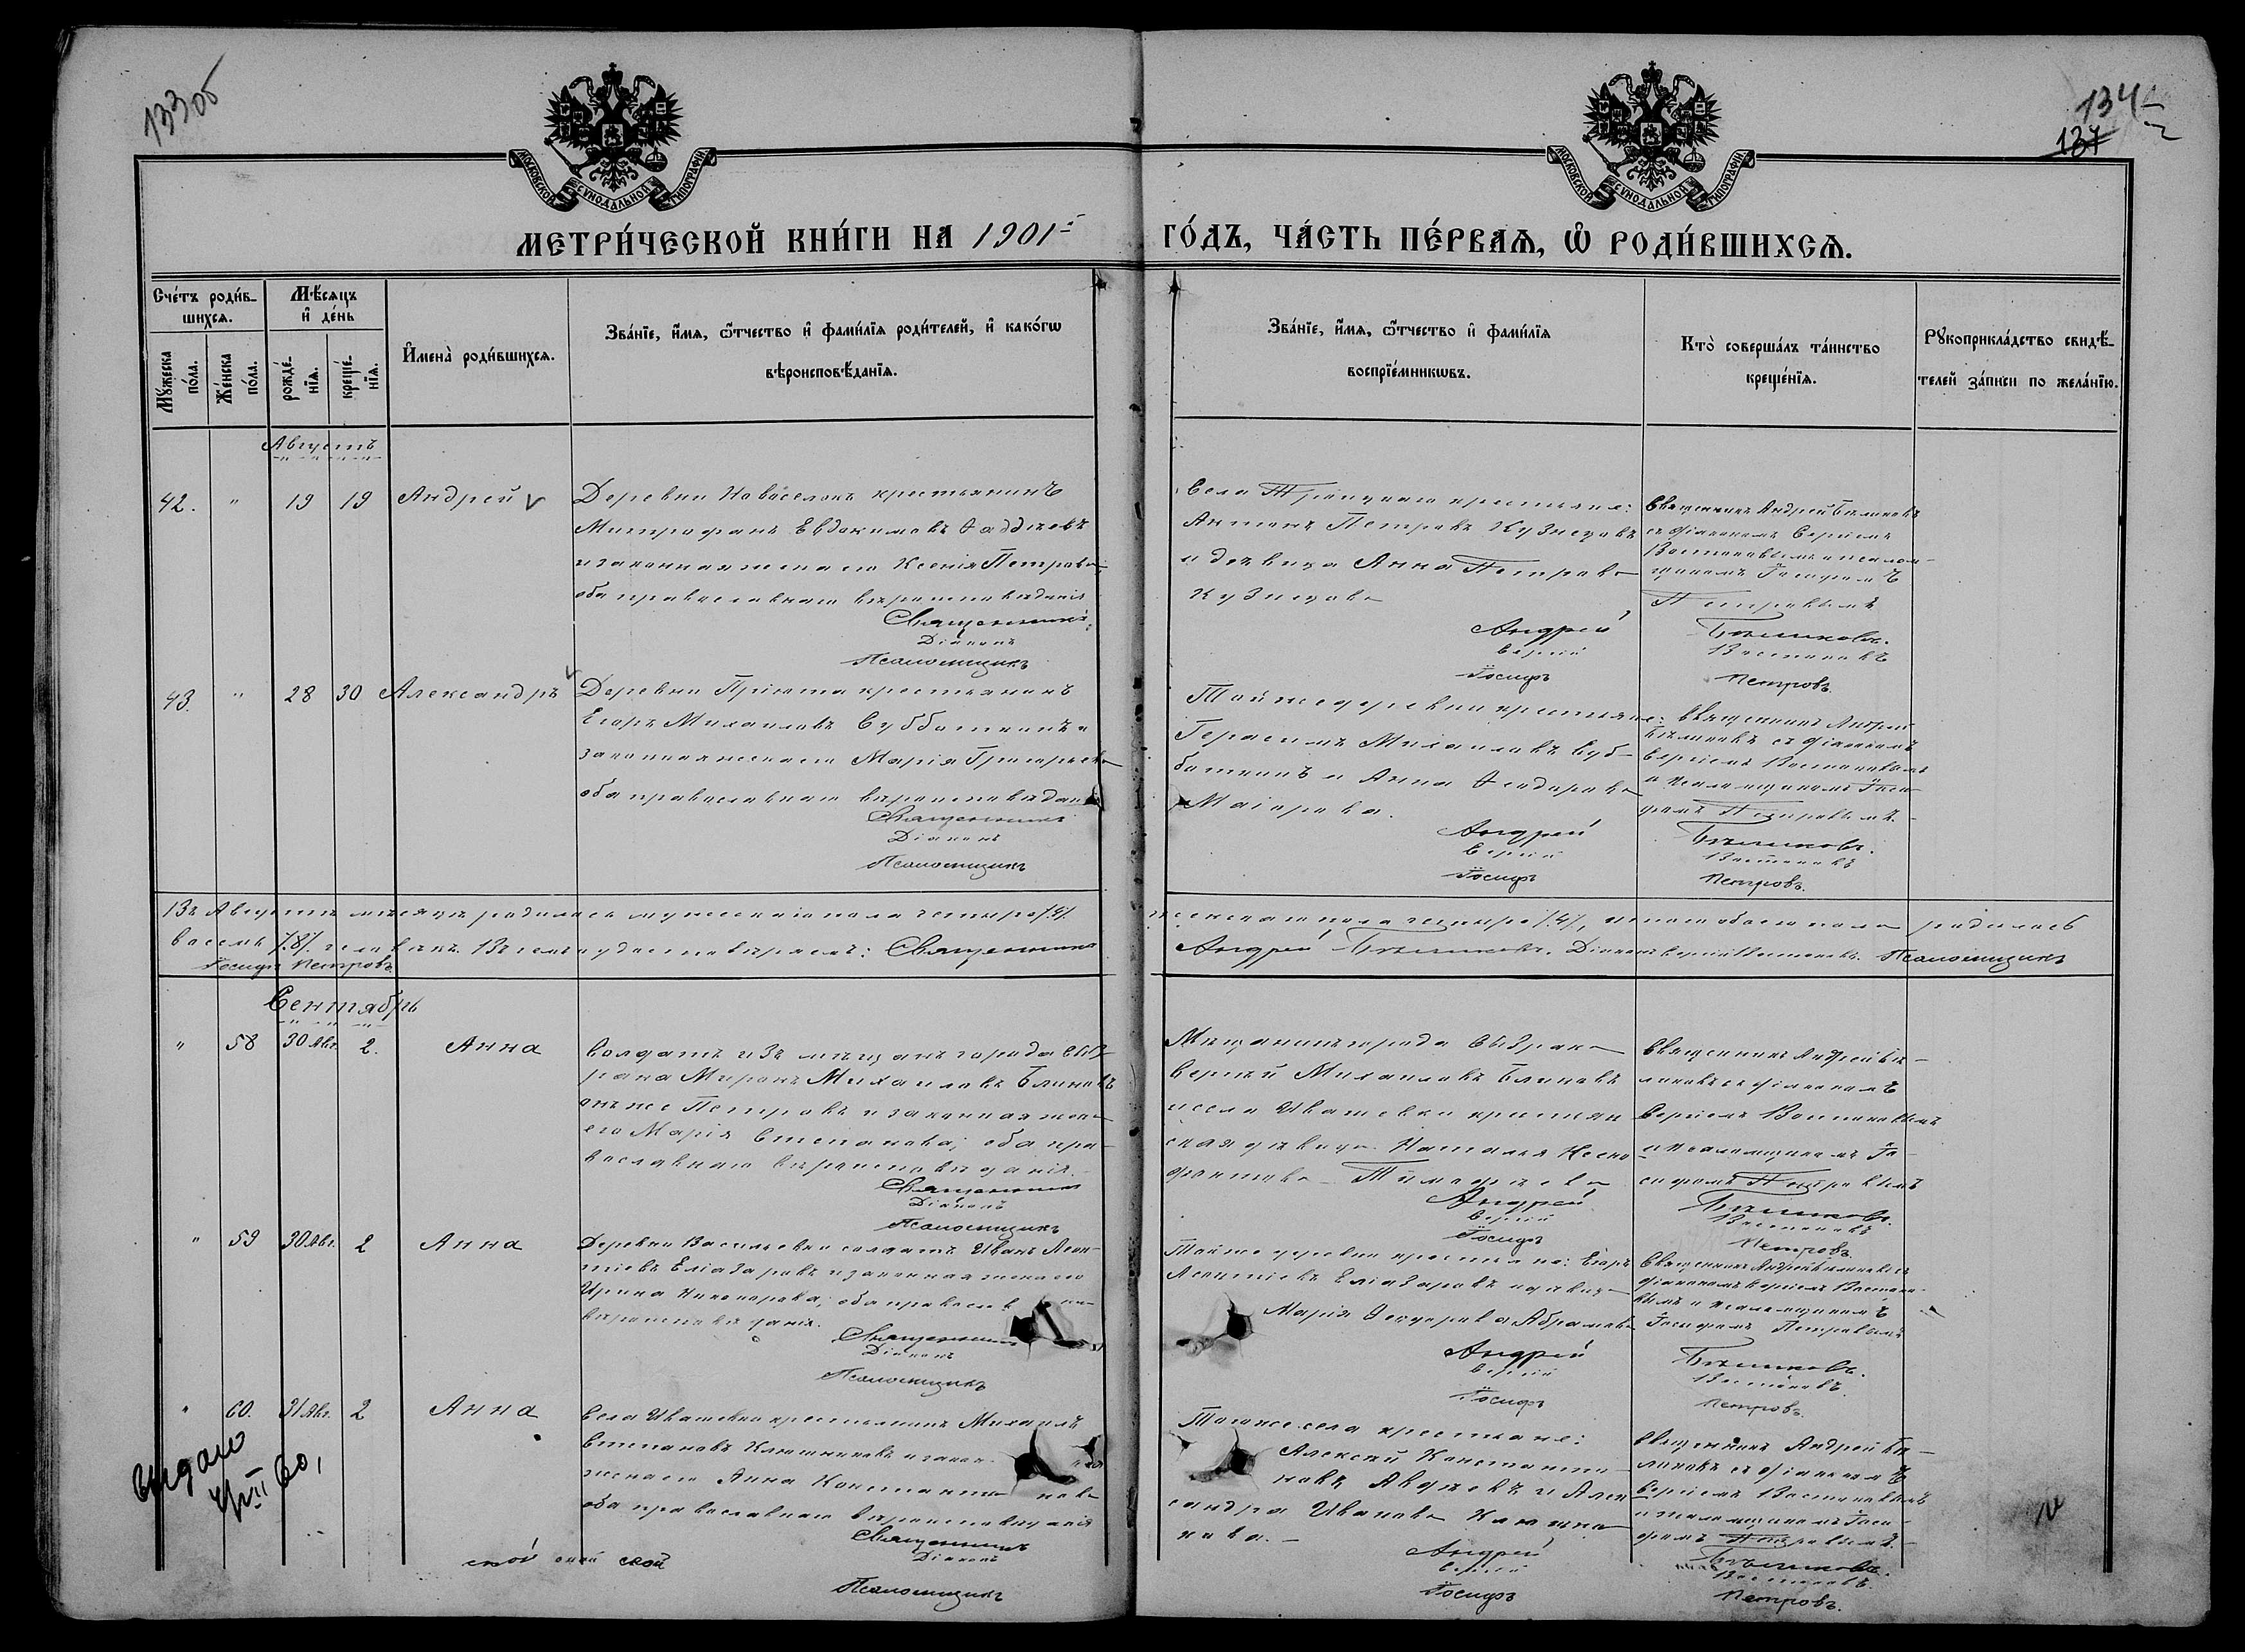 133 об
134
137
МОСКОВСКОЙ СѴНОДАЛЬНОЙ ТИПОГРАФІИ
МОСКОВСКОЙ СѴНОДАЛЬНОЙ ТИПОГРАФІИ
МЕТРИ́ЧЕСКОЙ КНИ́ГИ НА 1901
ГО́ДЪ, ЧА́СТЬ ПЕ́РВАѦ, Ѿ РОДИ́ВШИХСѦ.
Сче́тъ роди́в-
шихсѧ.
Мѣ́сѧцъ
и҆ де́нь
Мꙋ́жеска по́ла.
Же́нска по́ла.
рожде́-
нїѧ.
креще́-
нїѧ.
И҆мена̀ роди́вшихсѧ.
Зва́нїе, и҆́мѧ, ѻ҆́тчество и҆ фами́лїѧ роди́телей, и҆ како́гѡ
вѣроисповѣ́данїѧ.
Зва́нїе, и҆́мѧ, ѻ҆́тчество и҆ фами́лїѧ
воспрїе́мникѡвъ.
Кто̀ соверша́лъ та́инство
креще́нїѧ.
Рꙋкоприкла́дство свидѣ́-
телей за́писи по жела́нїю.
Августъ
42. " 19 19 Андрей
Деревни Новоселокъ крестьянинъ
Митрофанъ Евдокимовъ Ѳаддѣевъ
и законная жена его Ксенія Петрова,
оба православнаго вѣроисповѣданія
Священникъ
Діаконъ
Псаломщикъ
Села Троицкаго крестьяне:
Антонъ Петровъ Кузнецовъ
и дѣвица Анна Петрова
Кузнецова
Андрей
Сергій
Іосифъ
Священникъ Андрей Бѣликовъ
съ діакономъ Сергіемъ
Востоковымъ и псалом-
щикомъ Іосифомъ
Петровымъ
Бѣликовъ.
Востоковъ
Петровъ.
43. " 28 30 Александръ
Деревни Пріюта крестьянинъ
Егоръ Михаиловъ Субботинъ и
законная жена его Марія Григорьева
оба православнаго вѣроисповѣданія
Священникъ
Діаконъ
Псаломщикъ
Той же деревни крестьяне:
Герасимъ Михаиловъ Суб-
ботинъ и Анна Ѳеодорова
Маіорова.
Андрей
Сергій
Іосифъ
Священникъ Андрей
Бѣликовъ съ діакономъ
Сергіемъ Востоковымъ
и псаломщикомъ Іоси-
фомъ Петровымъ.
Бѣликовъ.
Востоковъ
Петровъ.
Въ Августѣ мѣсяцѣ родилось мужескаго пола четыре /4/,
женскаго пола четыре /4/, итого обоего пола родилось
восемь /8/ человѣкъ. Въ семъ удостовѣряемъ: Священникъ
Андрей Бѣликовъ. Діаконъ Сергій Востоковъ. Псаломщикъ
Іосифъ Петровъ
Сентябрь
" 58 30 Авг. 2. Анна
Солдатъ изъ мѣщанъ города Сыз-
рана Миронъ Михаиловъ Блиновъ
онъ же Петровъ и законная жена
его Марія Степанова; оба пра-
вославнаго вѣроисповѣданія.
Священникъ
Діаконъ
Псаломщикъ
Мѣщанинъ города Сызрана
Сергѣй Михаиловъ Блиновъ
и села Ивашевки крестьян
ская дѣвица Наталья Ксено
фонтова Тимофѣева
Андрей
Сергій
Іосифъ
Священникъ Андрей Бѣ-
ликовъ съ діакономъ
Сергіемъ Востоковымъ
и псаломщикомъ Іо-
сифомъ Петровымъ
Бѣликовъ.
Востоковъ
Петровъ.
" 59 30 Авг. 2 Анна
Деревни Васильевки солдатъ Иванъ Леон-
тіевъ Еліазаровъ и законная жена его
Ирина Никонорова; оба православ
вѣроисповѣданія.
Священникъ
Діаконъ
Псаломщикъ
Той же деревни крестьяне: Егоръ
Леонтіевъ Еліазаровъ и дѣвица
Марія Ѳеодорова Абрамова
Андрей
Сергій
Іосифъ
Священникъ Андрей Бѣликовъ съ
діакономъ Сергіемъ Востоко-
вымъ и псаломщикомъ
Іосифомъ Петровымъ
Бѣликовъ.
Востоковъ.
Петровъ.
" 60. 31 Авг. 2 Анна
Села Ивашевки крестьянинъ Михаилъ
Степановъ Ключниковъ и закон
жена его Анна Константинова
оба православнаго вѣроисповѣданія
Священникъ
Діаконъ
Псаломщикъ
Того же села крестьяне:
Алексѣй Константи-
новъ Авдѣевъ и Алек
сандра Иванова Ключни
кова.
Андрей
Сергій
Іосифъ
Священникъ Андрей Бѣ-
ликовъ съ діакономъ
Сергіемъ Востоковымъ
и псаломщикомъ Іоси-
фомъ Петровымъ.
Бѣликовъ.
Востоковъ.
Петровъ.
выдано
ской